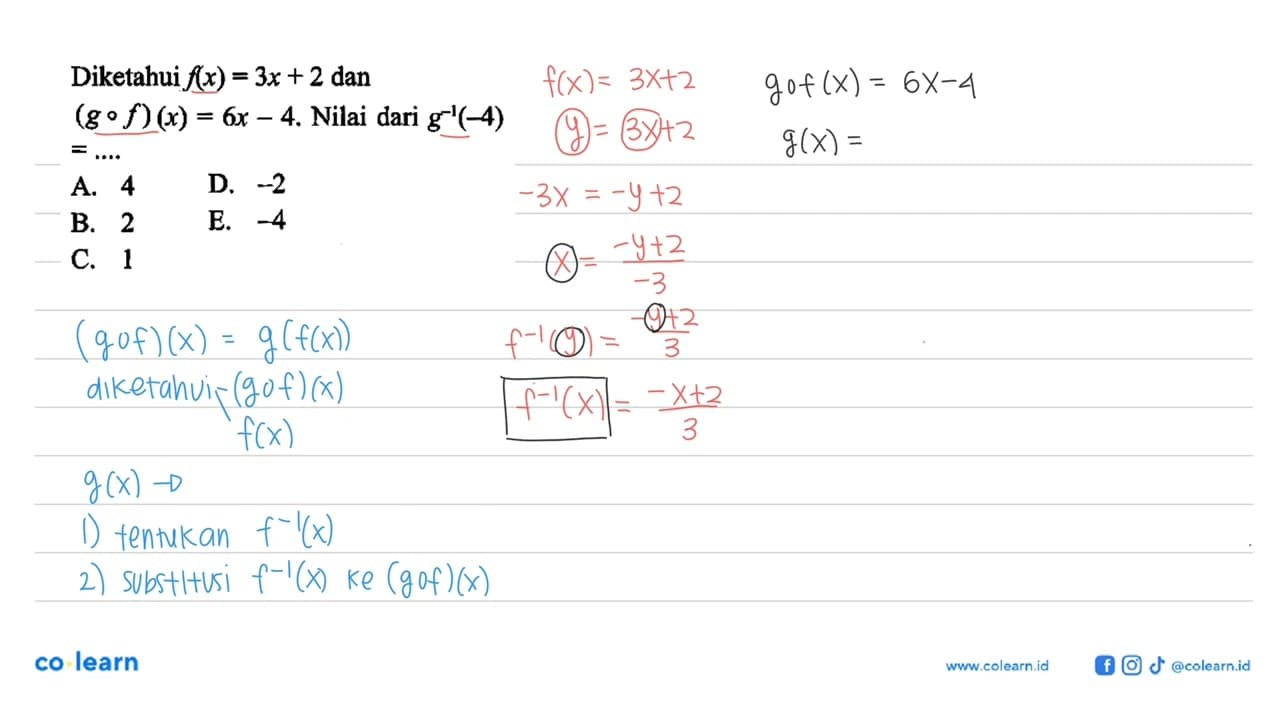 Diketahui f(x) = 3x + 2 dan
(g ∘ f)(x) = 6x – 4. Nilai dari g⁻¹(–4)
= ....
A. 4 D. –2
B. 2 E. –4
C. 1
(gof)(x) = g(f(x))
diketahui (gof)(x)
f(x)
g(x) →
1) tentukan f⁻¹(x)
2) substitusi f⁻¹(x) ke (gof)(x)
f(x) = 3x+2
y = 3x+2
-3x = -y+2
x = -y+2
-3
f⁻¹(y) = -y+2
3
f⁻¹(x) = -x+2
3
gof(x) = 6x-4
g(x) =
co learn
www.colearn.id @colearn.id